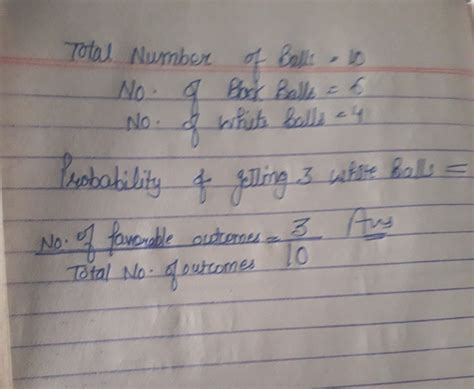 Total Number of Balls = 10
No. of Black Balls = 6
No. of white Balls = 4
Probability of getting 3 white Balls =
No. of favorable outcomes = 3 Ans
Total No. of outcomes 10